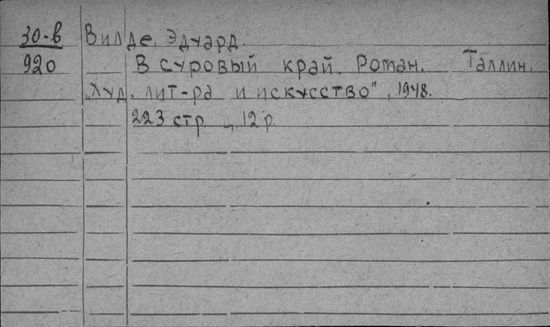 30-в Вилде, Эдуард.
920 В суровый край. Роман. Таллин.
„Худ. лит-ра и искусство", 1948.
223 стр ц. 12 р.